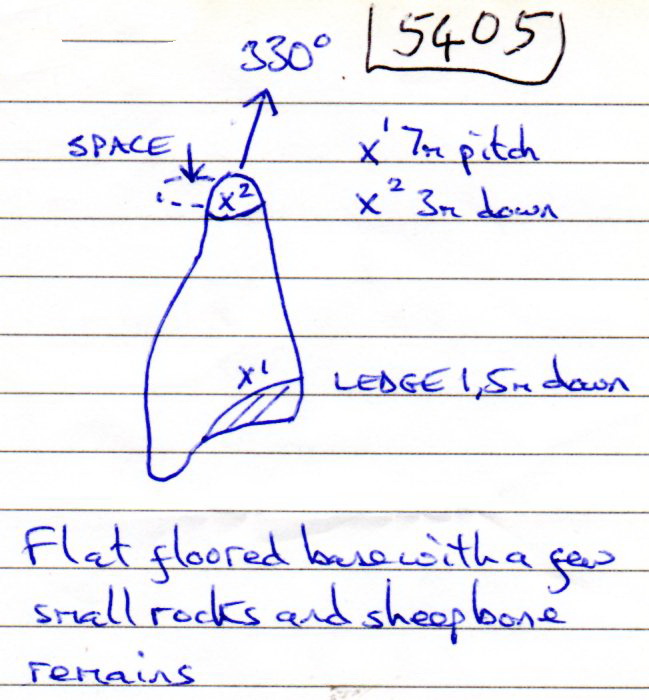 5405
330°
SPACE
x¹ 7m pitch
x² 3m down
x²
x¹
LEDGE 1,5m down
Flat floored base with a few
small rocks and sheep bone
remains